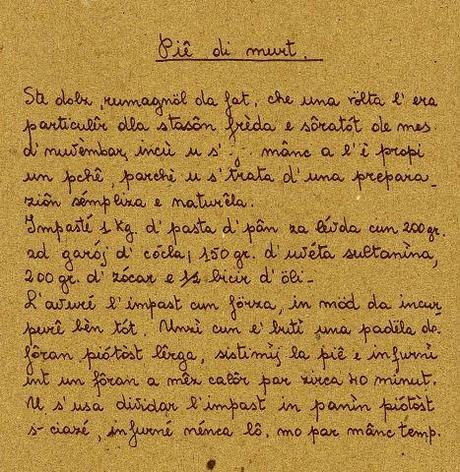 Piê di murt.
Sta dolz, rumagnôl da fat, che una vôlta l'era
particulêr dla stasôn frèda e sôratót de mes
d'nuvèmbar, incù u s' mânc a l'è propi
un pchê, parchè u s'trata d'una prepara_
ziôn sémpliza e naturêla.
Impasté 1 Kg. d'pasta d'pân za lévda cun 200 gr.
ad garój d'cócla, 150 gr. d'uvéta sultanìna,
200 gr. d'zócar e 1/2 bicir d'ôli_
L'avuré l'impast cun fôrza, in môd da incur_
purê bên tót. Unzì cun e' butì una padêla da
fôran piótòst lêrga, sistimìj la piê e infurnì
int un fôran a mêz calôr par zirca 40 minut.
U s'usa dividar l'impast in panìn piótòst
s-ciazé, infurné nénca lô, mo par mânc temp.